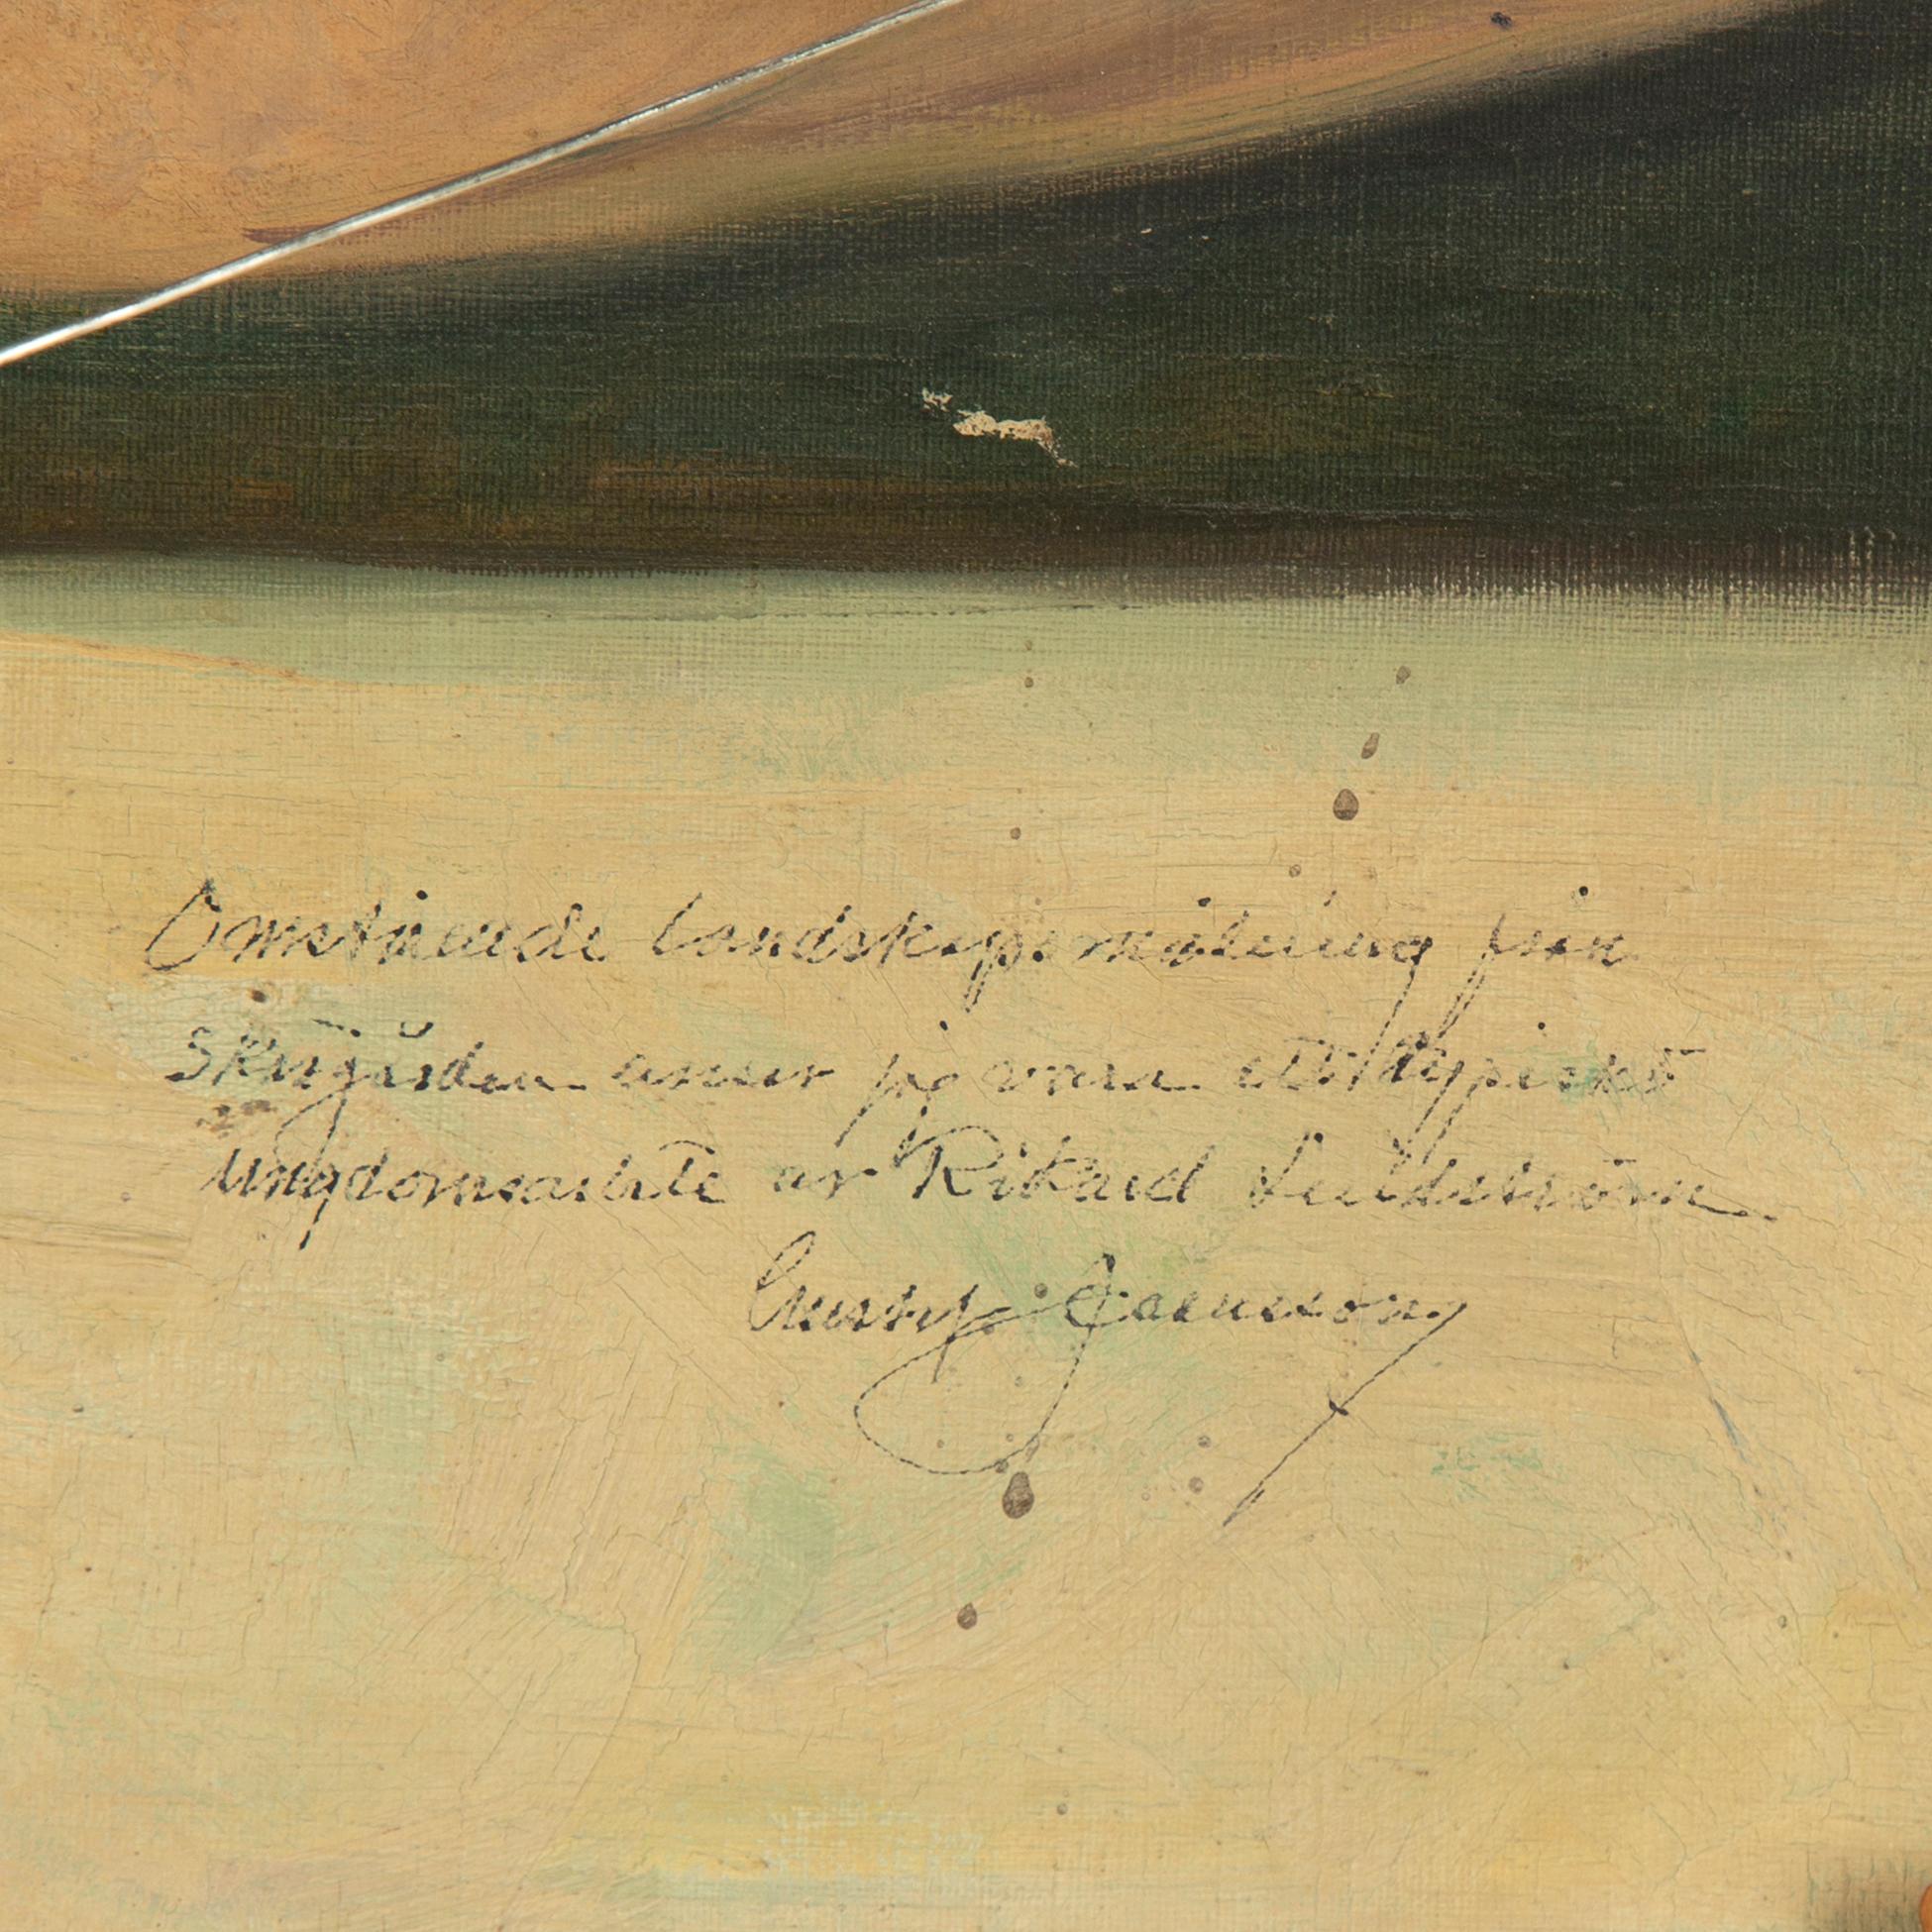 Omstående landskapsmålning från
skärgården anser jag vara ett typiskt
ungdomsarbete av Rikard Lindström
Gurly Jaensson